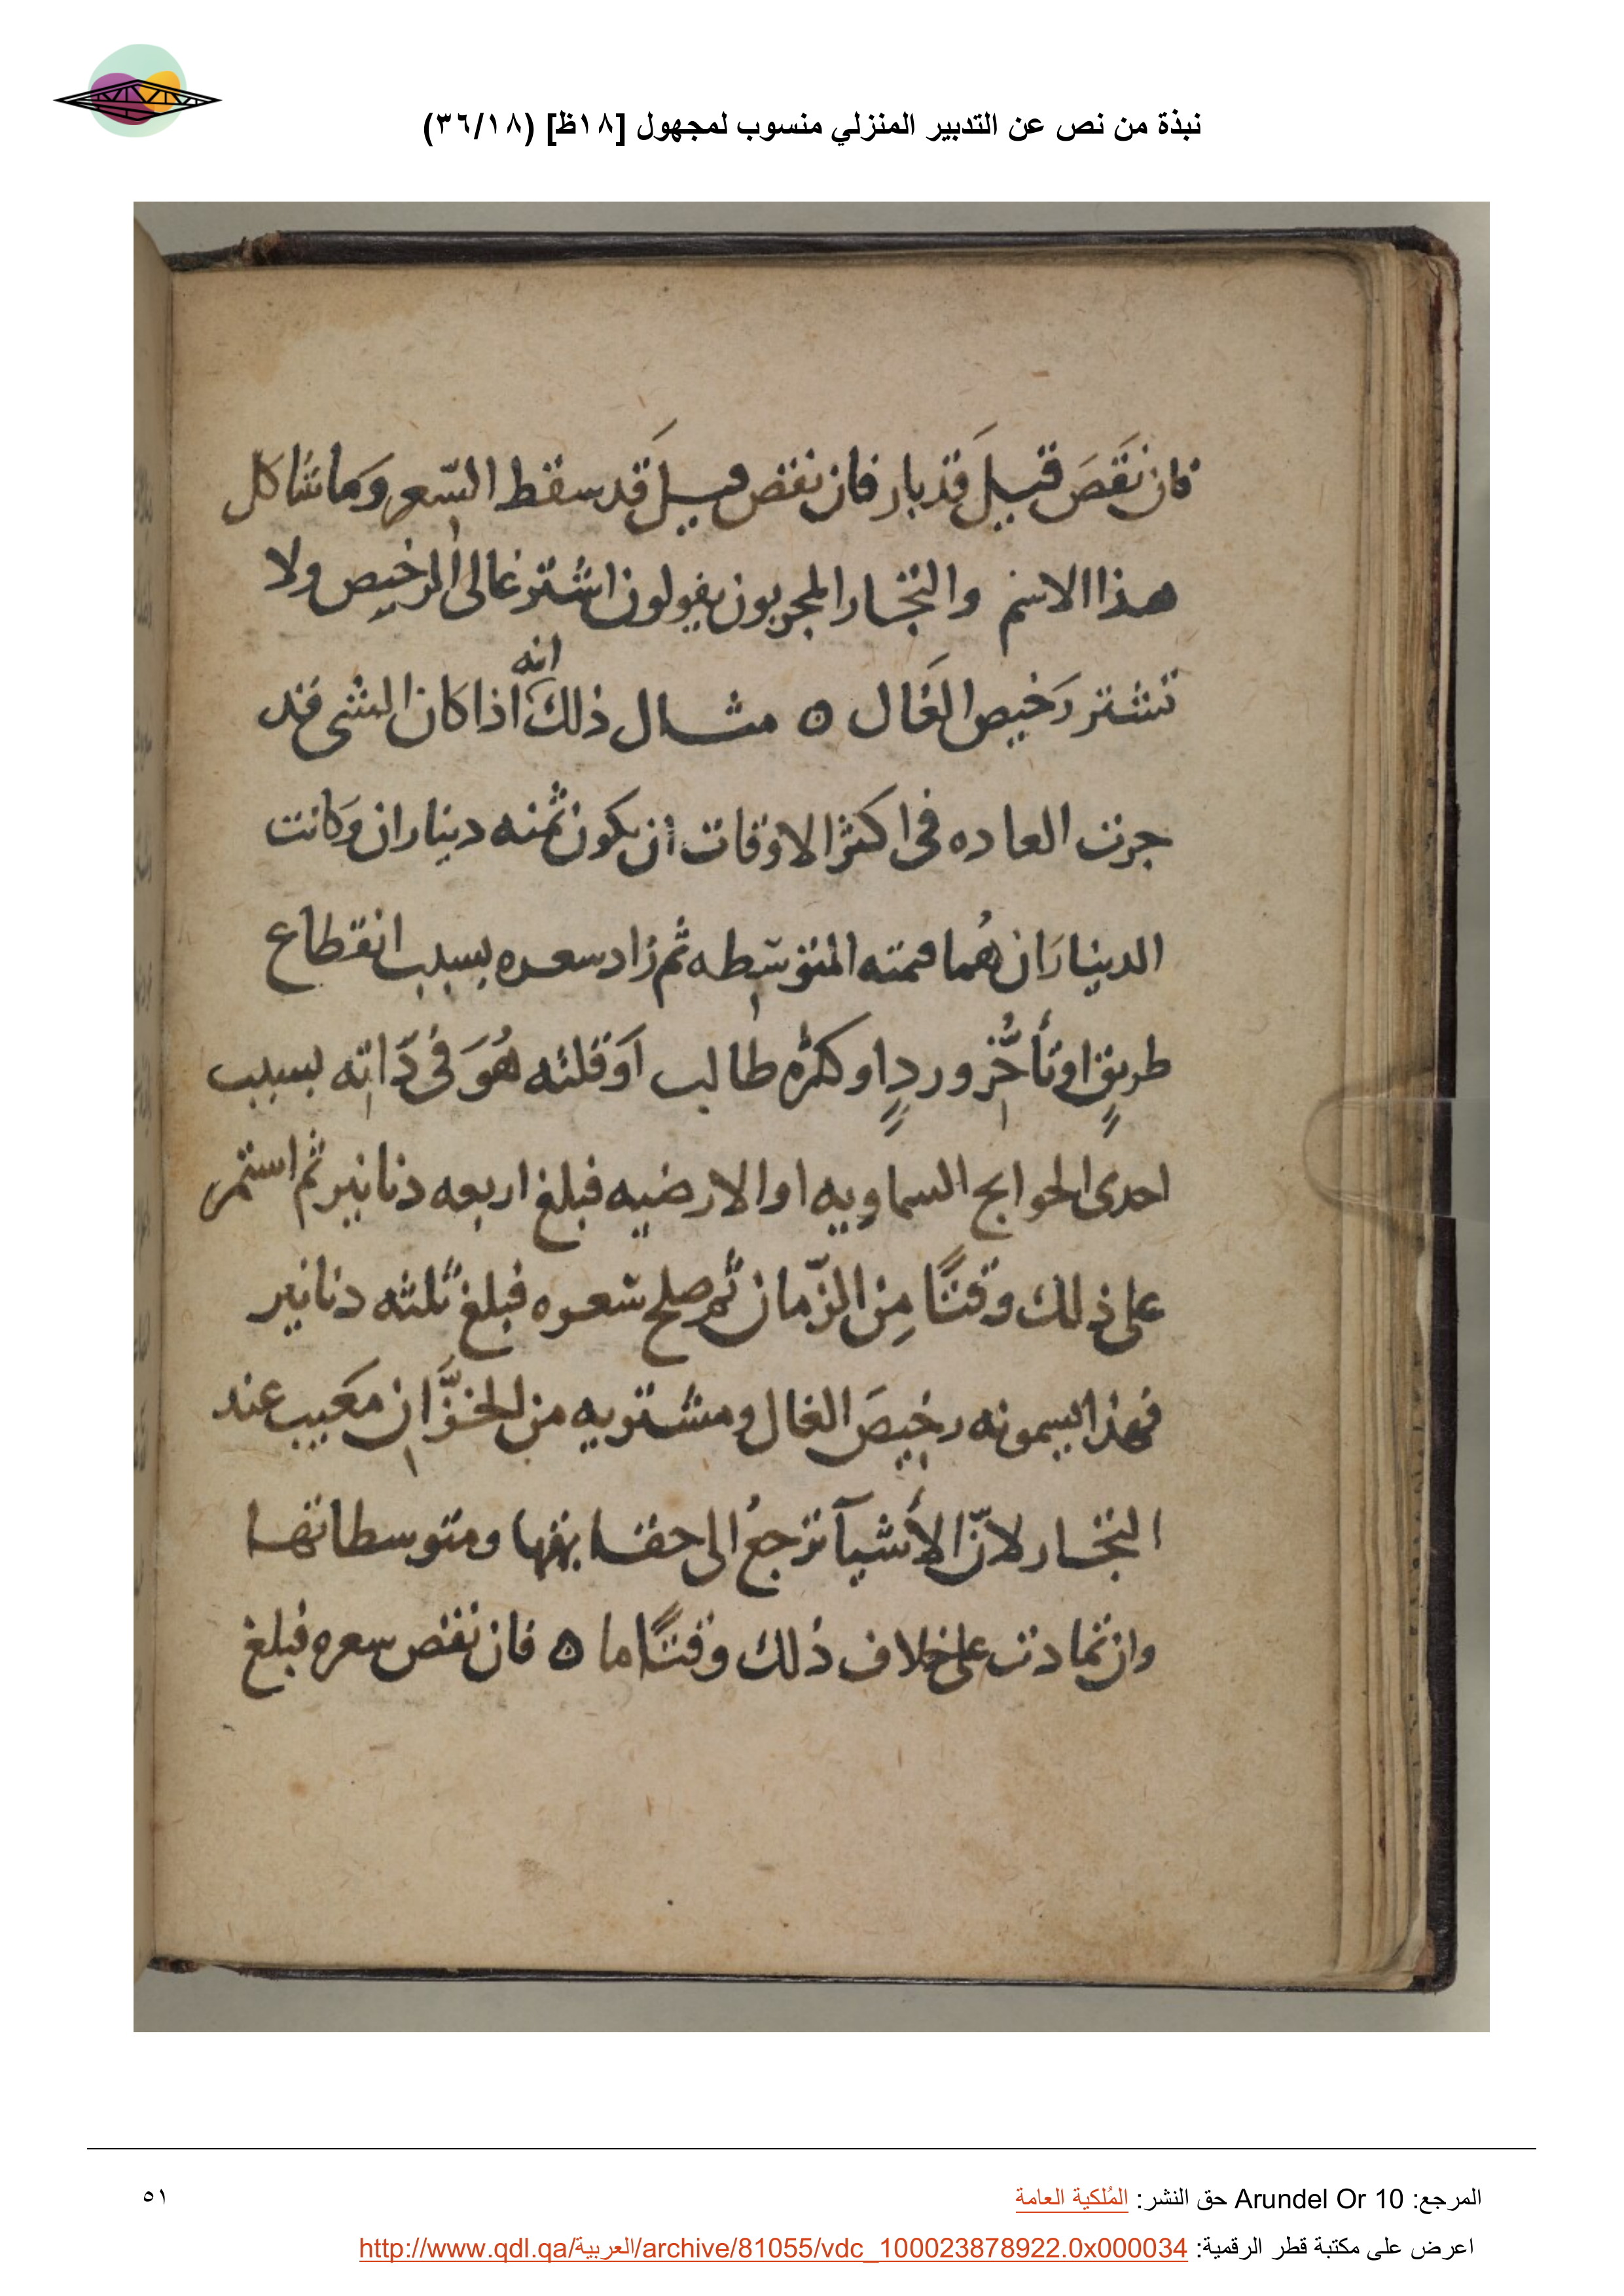 نبذة من نص عن التدبير المنزلي منسوب لمجهول [١٨ظ] (٣٦/١٨)
فان نقَصَ قيلَ قد بار فان نقص قيلَ قد سقط السّعر وَما شاكل
هذا الاسم والتجار المجربون يقولون اشتر غالى الرخيص ولا
تشتر رَخيص الغَال ٥ مثال ذلك انه اذا كان الشى قد
جرت العاده فى اكثر الاوقات ان يكون ثمنه ديناران وَكانت
الديناران هُما قيمته المتوسّطه ثم زاد سعره بسبب انقطاع
طريقٍ او تأخُّر وردٍ او كثرة طالب اوَ قلته هُوَ فى ذاته بسبب
احدى الحوايج السماويه او الارضيه فبلغ اربعه دنانير ثم استمر
على ذلك وقتًا مِن الزّمان ثم صلح سعره فبلغ ثلثه دنانير
فهذا يسمونه رخيصَ الغال ومشتريه من الخزَّان معَيب عند
التجار لانّ الأشيآ ترجعُ الى حقايقها ومتوسطاتها
وان تمادت على خلاف ذلك وقتًا ما ٥ فان نقص سعره فبلغ
المرجع: Arundel Or 10 حق النشر: المُلكية العامة
٥١
اعرض على مكتبة قطر الرقمية: http://www.qdl.qa/العربية/archive/81055/vdc_100023878922.0x000034